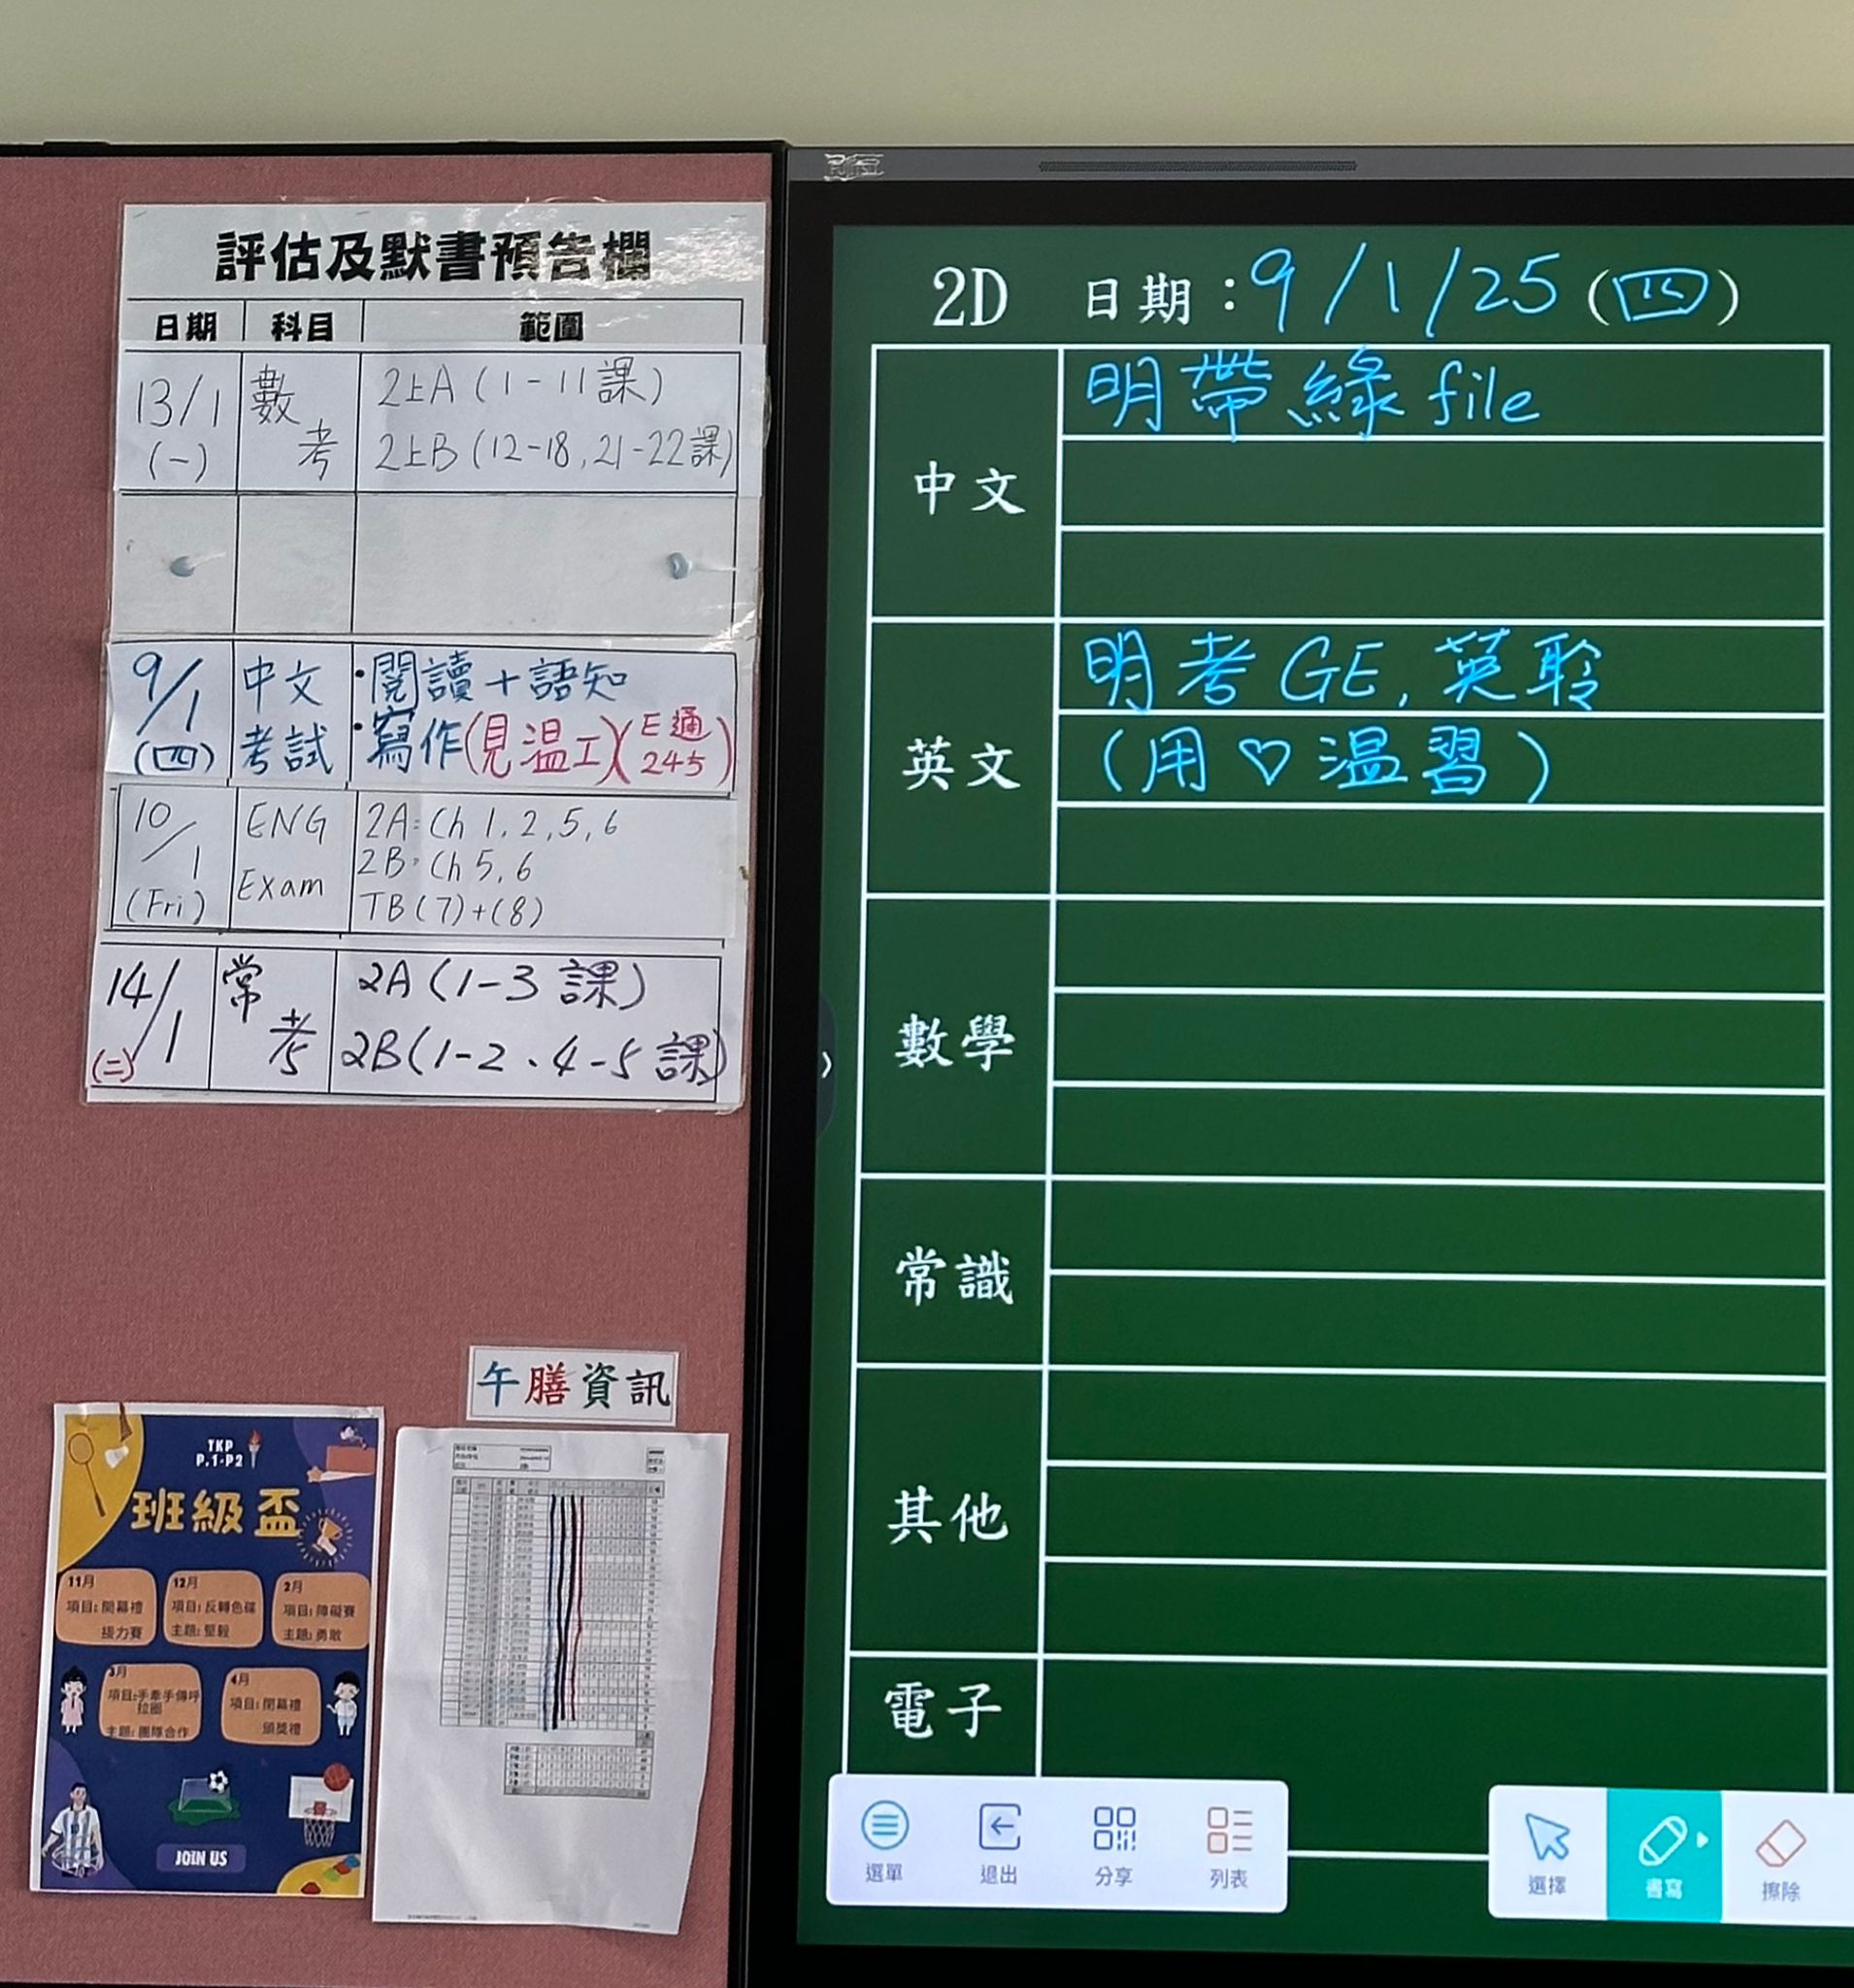 評估及默書預告欄
日期 科目 範圍
13/1 (一) 數考 2上A (1-11課)
2上B (12-18, 21-22課)
9/1 (四) 中文考試 ·閱讀+語知
·寫作(見温工)(E通245)
10/1 (Fri) ENG Exam 2A: Ch 1, 2, 5, 6
2B: Ch 5, 6
TB (7)+(8)
14/1 (二) 常考 2A (1-3 課)
2B (1-2、4-5 課)
午膳資訊
TKP
P.1-P2
班級盃
11月
項目: 開幕禮
接力賽
12月
項目: 反轉色碟
主題: 堅毅
2月
項目: 障礙賽
主題: 勇敢
3月
項目: 手牽手傳呼拉圈
主題: 團隊合作
4月
項目: 閉幕禮
頒獎禮
JOIN US
2D 日期：9/1/25 (四)
中文
明帶綠 file
英文
明考 GE, 英聆
(用♡温習)
數學
常識
其他
電子
選單 退出 分享 列表
選擇 書寫 擦除